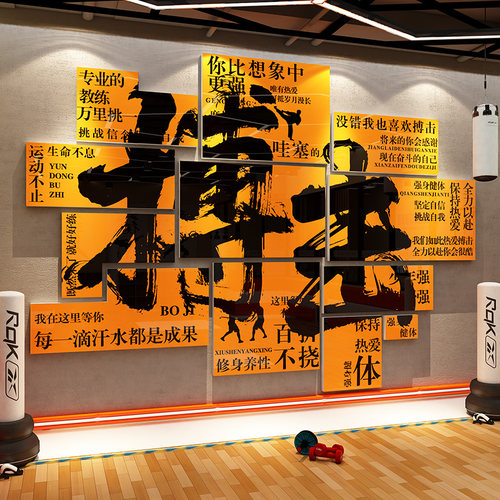 专业的
教练
万里挑一
挑战信
你比想象中
更强
唯有热爱
可抵岁月漫长
哇塞的
没错我也喜欢搏击
将来的你会感谢
JIANGLAIDENIHUIGANXIE
现在奋斗的自己
XIANZAIFENDOUDEZIJI
运动不止
生命不息
YUN
DONG
BU
ZHI
搏击
强身健体
QIANGSHENJIANTI
坚定自信
挑战自我
保持热爱
全力以赴
我们如此热爱搏击
全力以赴你会很酷
就好好练
我在这里等你
BO JI
每一滴汗水都是成果
XIUSHENYANGXING
修身养性
百折
不挠
保持
热爱
体
健强
强
强
健体
RqK
RqK